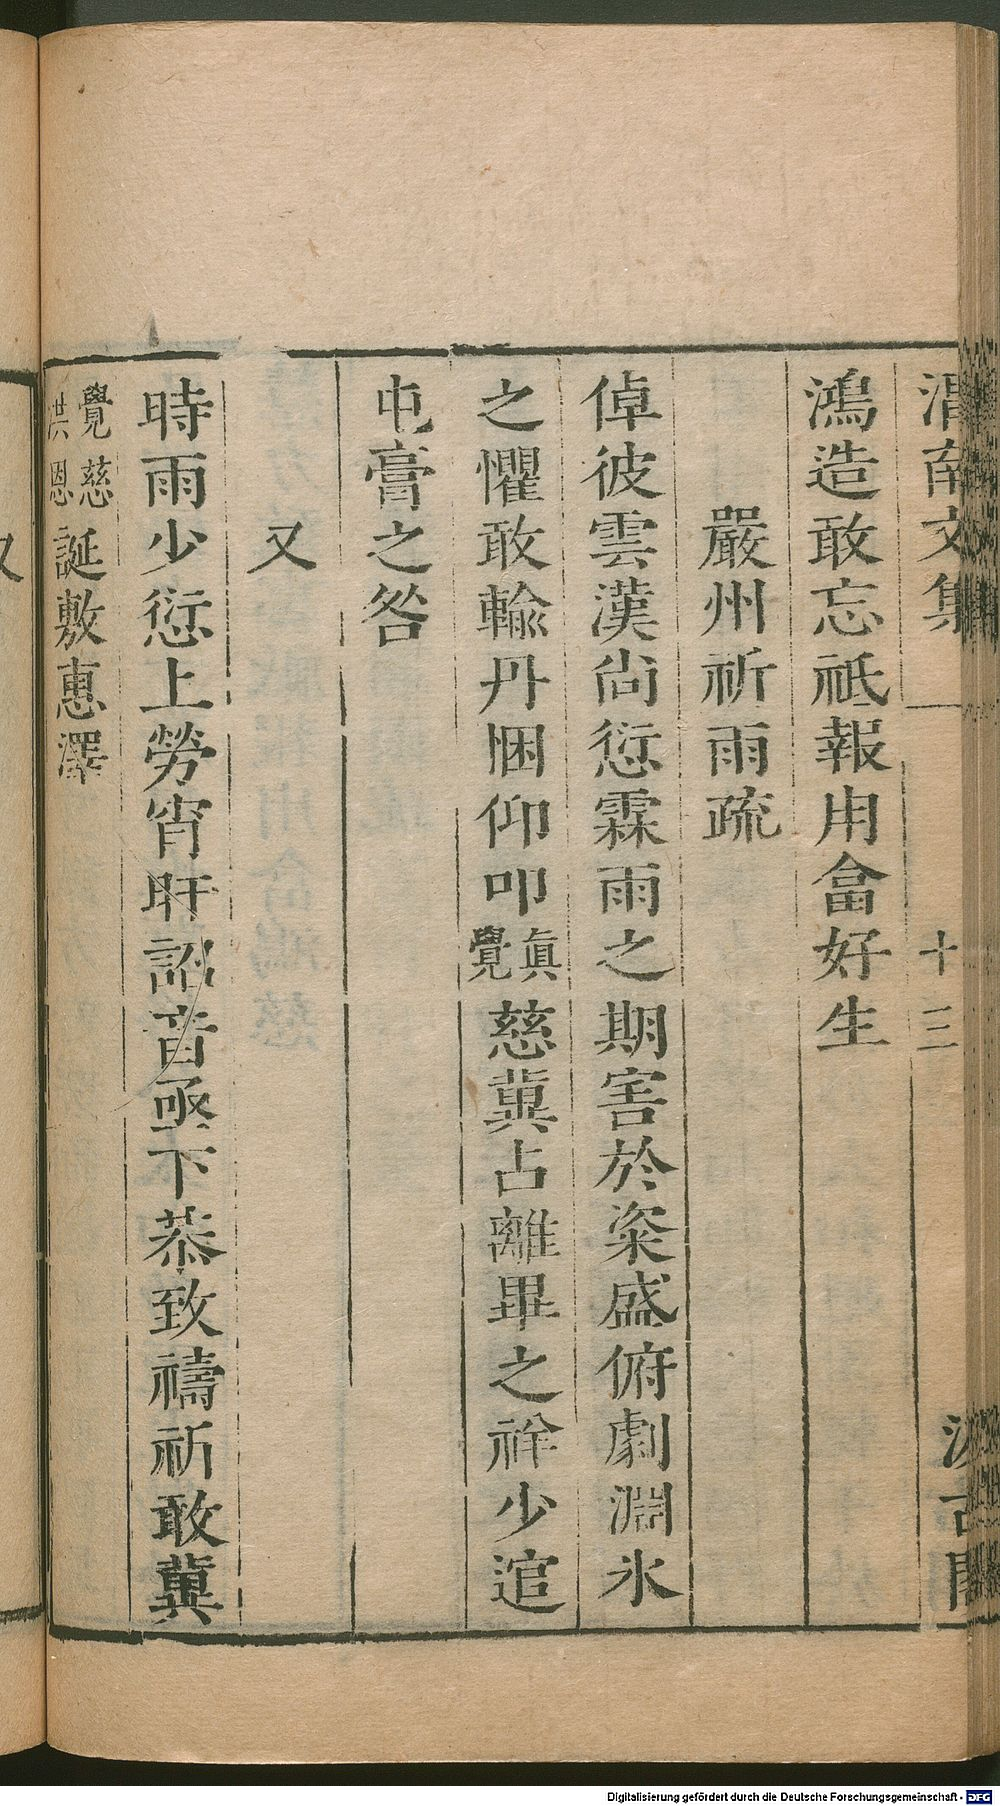 渭南文集
十三
汲古閣
鴻造敢忘祗報用畣好生
嚴州祈雨疏
倬彼雲漢尚愆霖雨之期害於粢盛俯劇淵氷
之懼敢輸丹悃仰叩眞覺慈冀占離畢之祥少逭
屯膏之咎
又
時雨少愆上勞宵旰詔音亟下恭致禱祈敢冀
覺慈洪恩誕敷惠澤
又
Digitalisierung gefördert durch die Deutsche Forschungsgemeinschaft - DFG